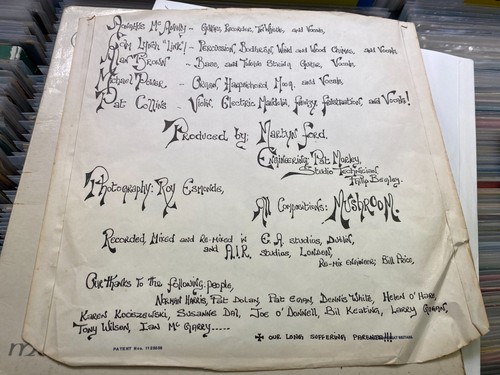 Mc Avinny ~ Guitar, Recorder, Tin Whistle, and Vocals,
"Link" ~ Percussion, Bodhrans, Wind and Wood Chimes, and Vocals
Alan Brown ~ Bass, and Twelve String Guitar, Vocals,
Michael Power ~ Organ, Harpsichord, Moog, and Vocals,
Pat Collins ~ Violin, Electric Mandolin, and Vocals!
Produced by; Martyn Ford,
Engineering; Pat Morley,
Studio Technician
Philip Begley.
Photography: Roy Esmonde,
All Compositions: MUSHROOM.
Recorded, Mixed and Re-mixed in E.A. studios, Dublin,
and A.I.R. studios, London,
Re-mix engineer; Bill Price,
Our thanks to the following people,
Nathan Harris, Pat Dolan, Pat Egan, Dennis White, Helen O'Hare,
Karen Kociszewski, Susanne Dal, Joe O'Donnell, Bill Keating, Larry
Tony Wilson, Ivan Mc Garry.....
OUR LONG SUFFERING PARENTS!!!
PATENT Nos.